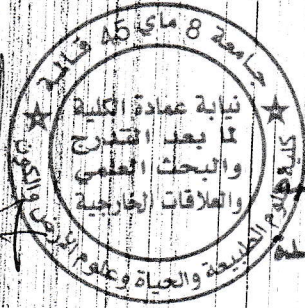 جامعة 8 ماي 45 قالمة
نيابة عمادة الكلية
لما بعد التدرج
والبحث العلمي
والعلاقات الخارجية
كلية علوم الطبيعة والحياة وعلوم الأرض والكون